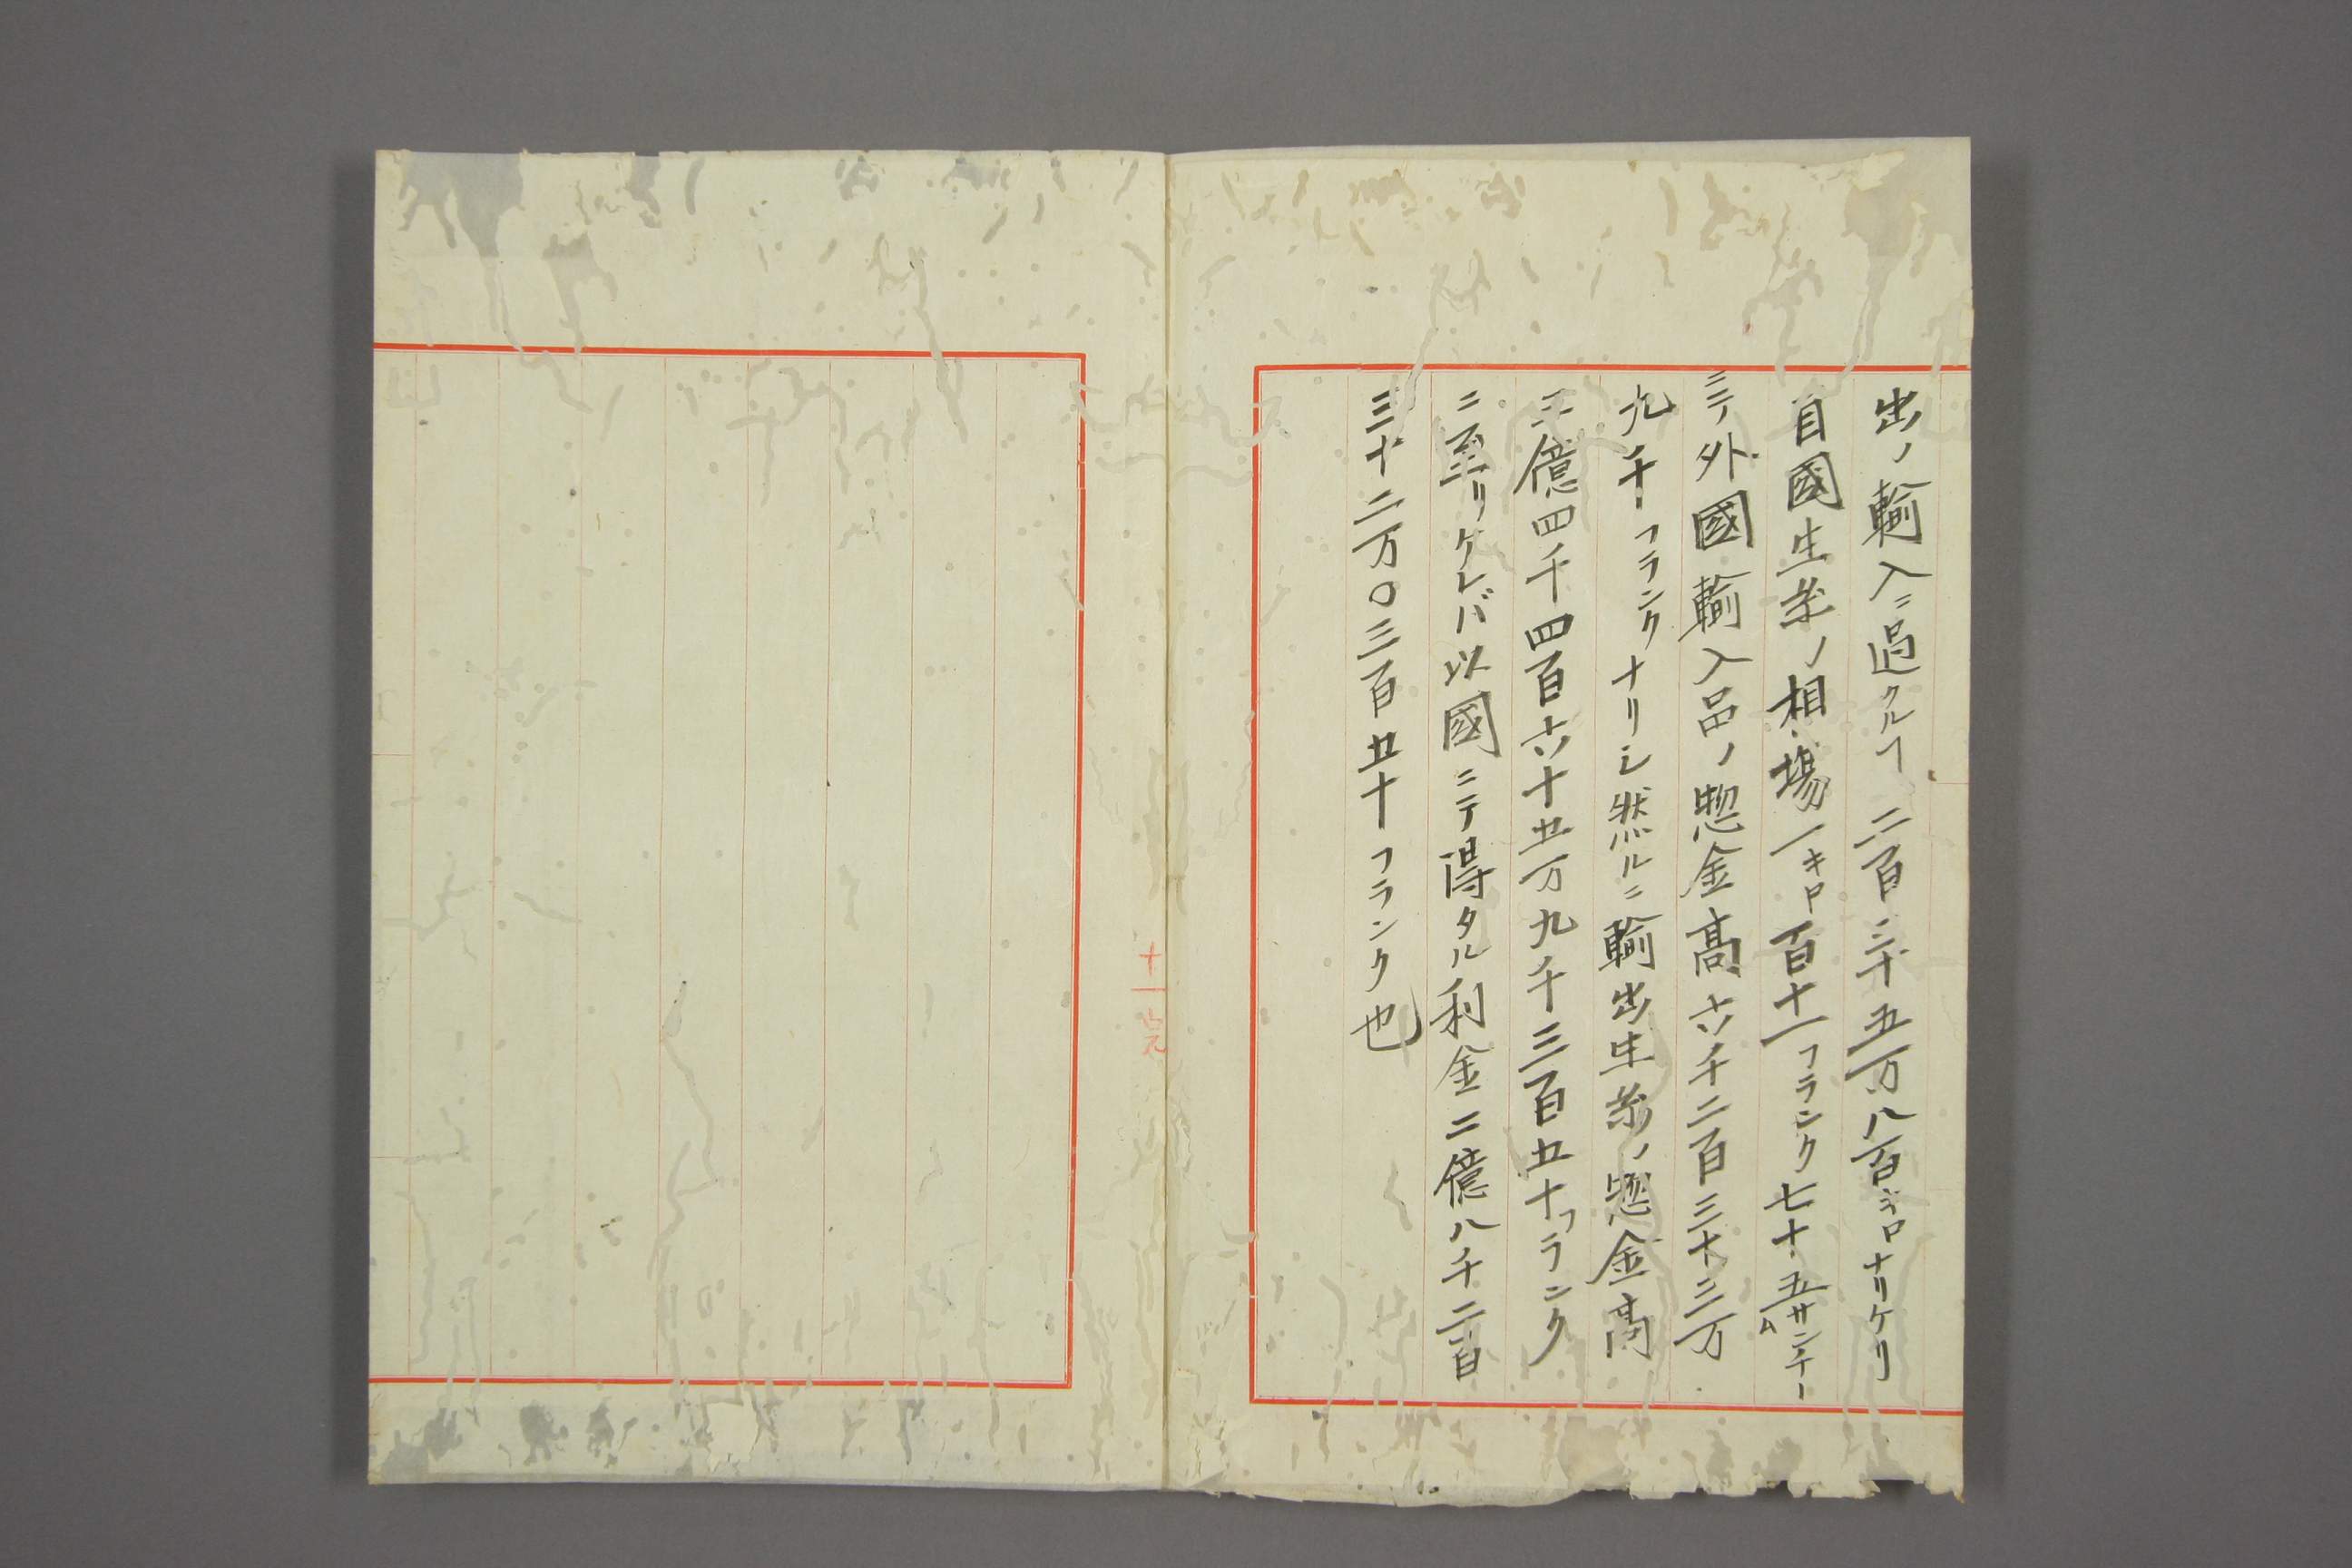 出ノ輸入ニ過クルヿ二百三十五万八百キロナリケリ
自國生糸ノ相場一キロ百十一フランク七十五サンチーム
ニテ外國輸入品ノ惣金高六千二百三十三万
九千フランクナリシ然ルニ輸出生糸ノ惣金高
三億四千四百六十五万九千三百五十フランク
ニ至リケレバ以國ニテ得タル利金二億八千二百
三十二万〇三百五十フランク也
十一完